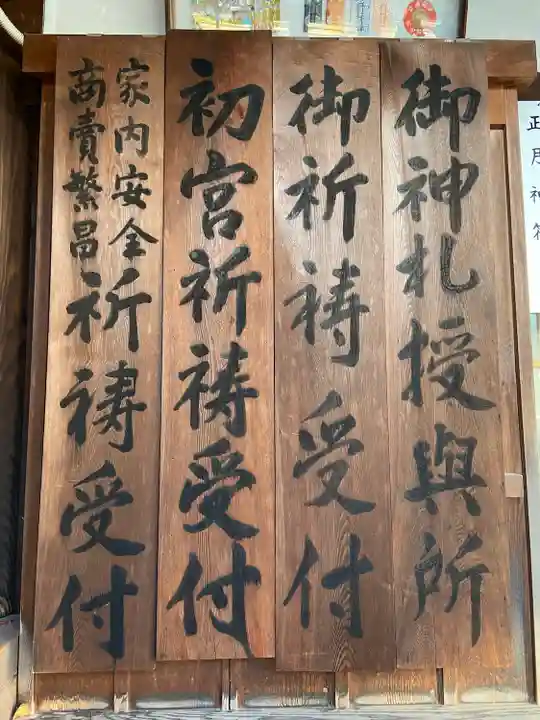 御神札授與所
御祈祷受付
初宮祈祷受付
家内安全
商賣繁昌
祈祷受付